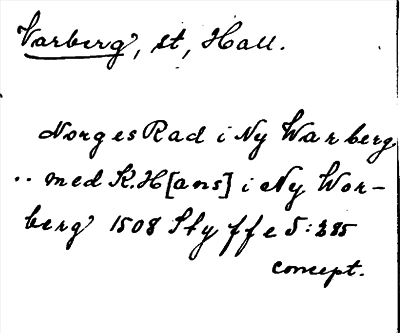 Varberg, st, Hall.
Norges Rad i Ny Warberg
.. med K. H[ans] i Ny War-
berg 1508 Styffe 5:285
concept.